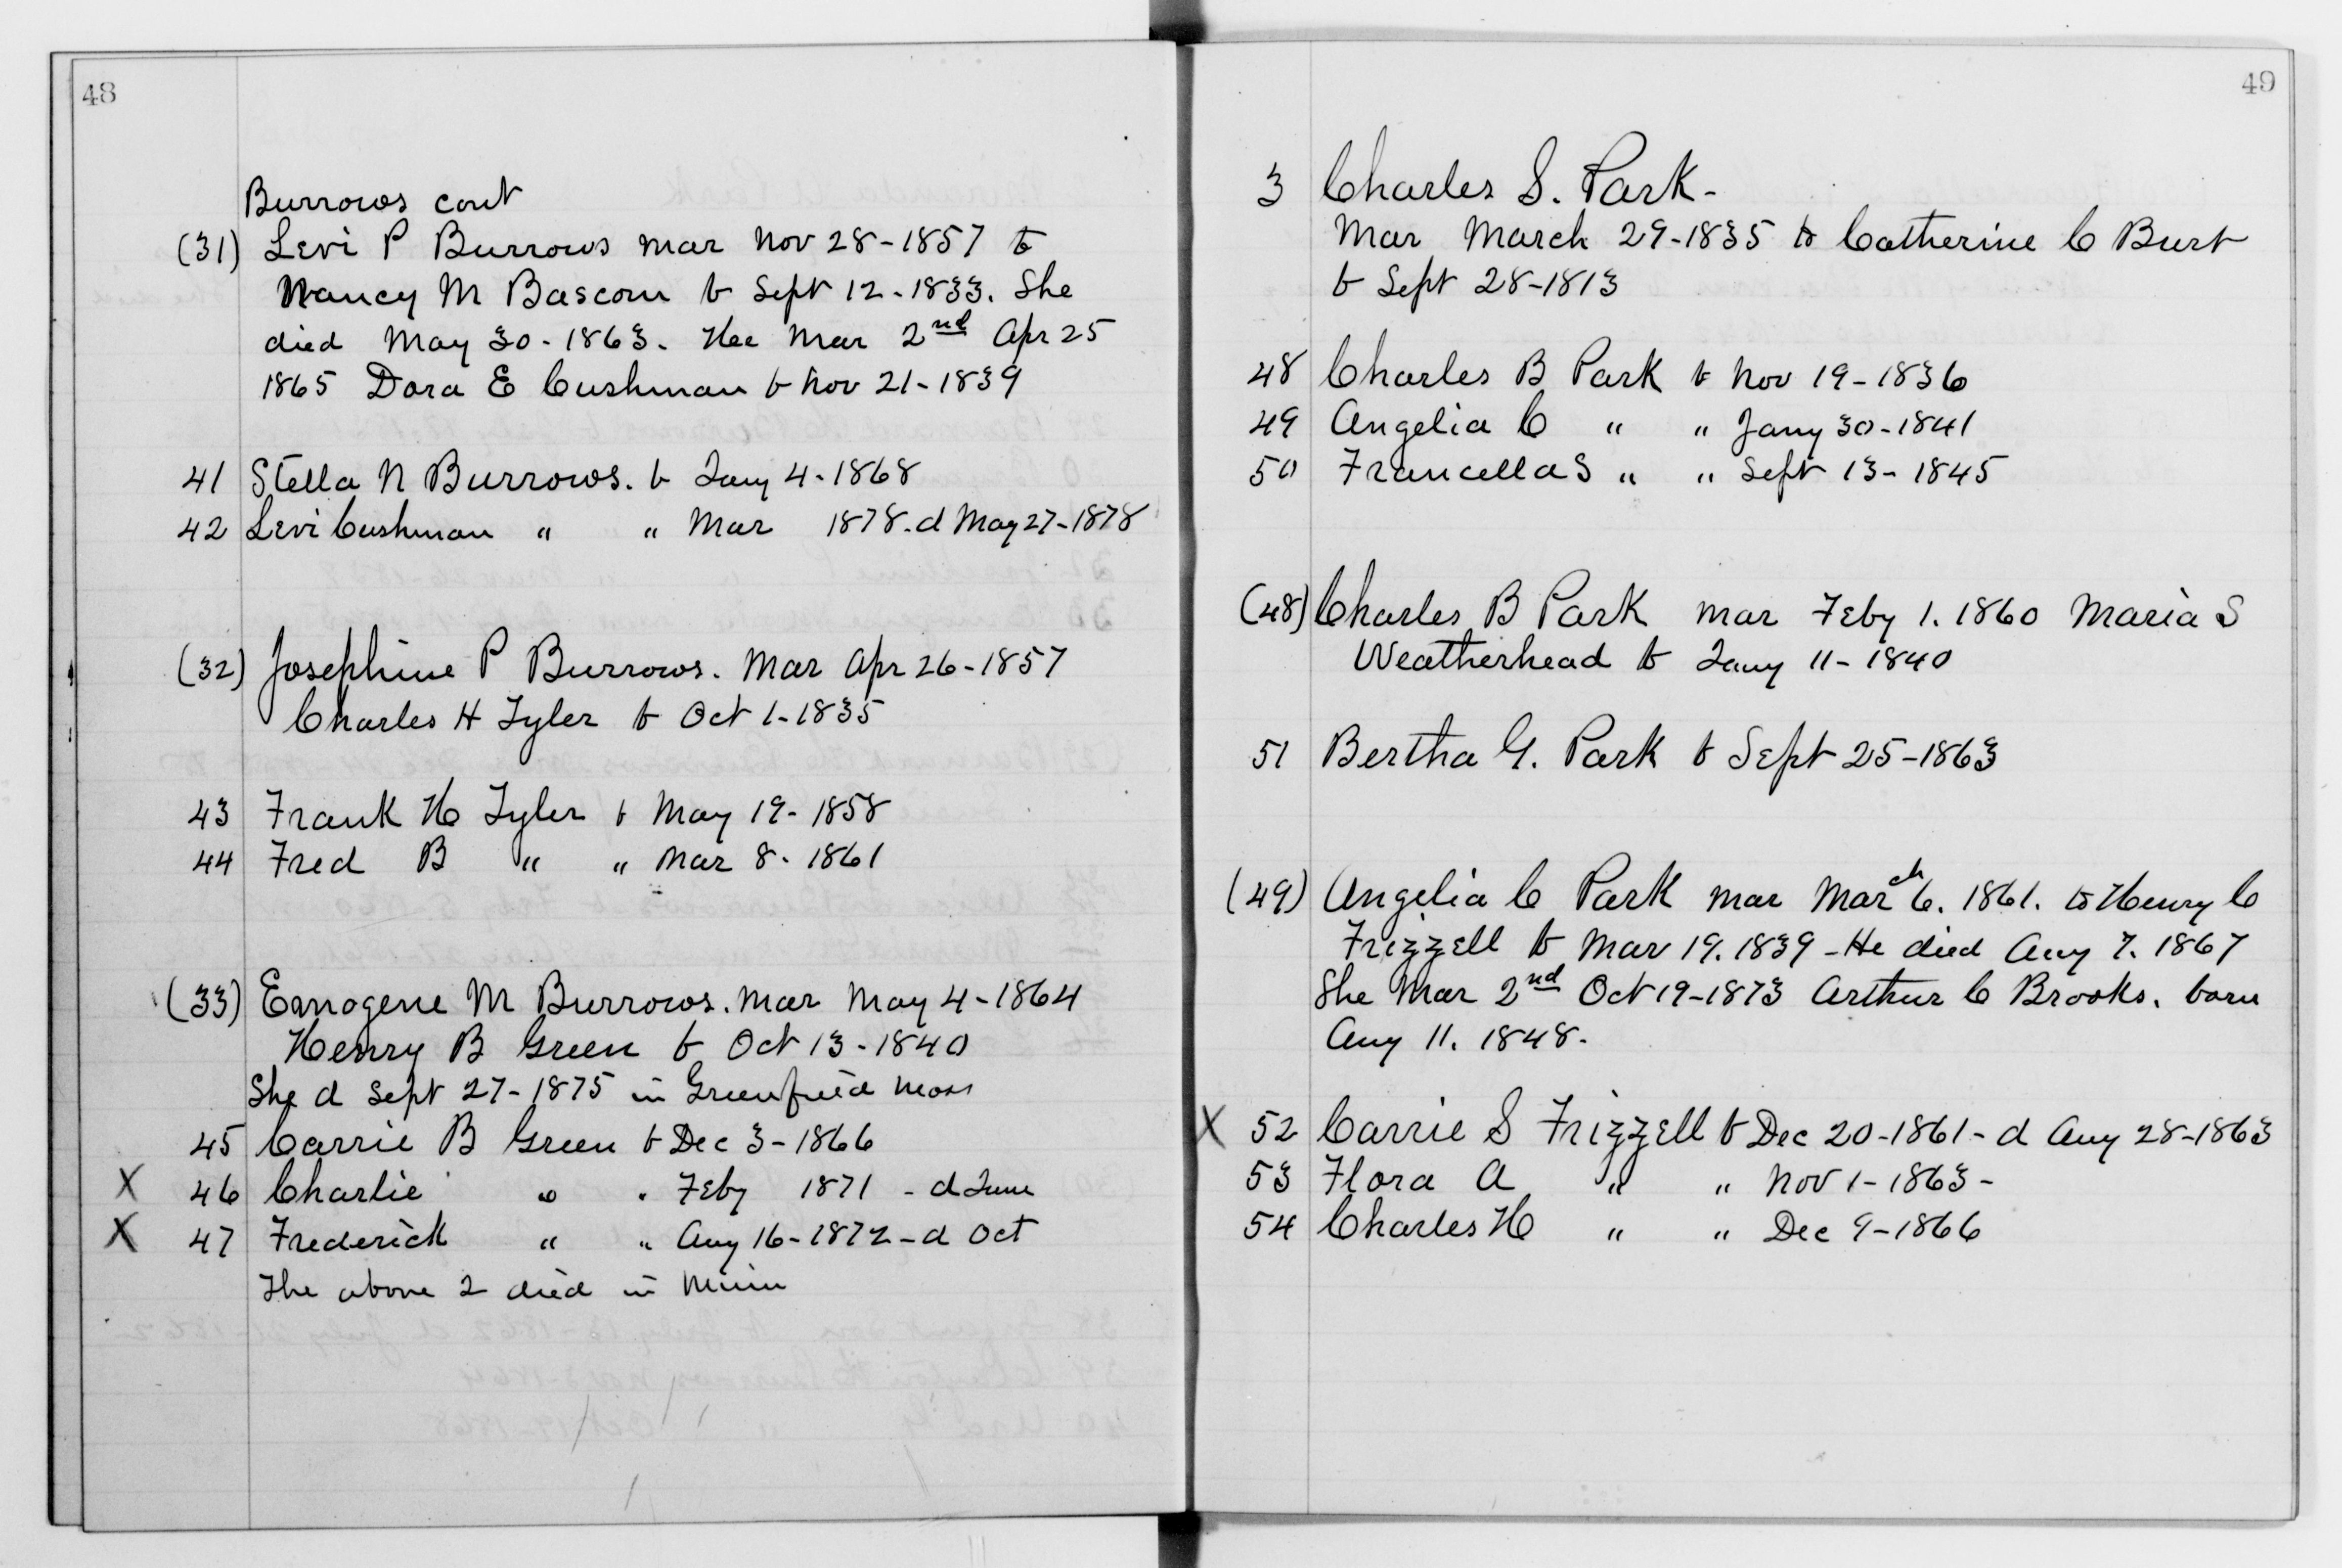 48
Burrows cont
(31) Levi P Burrows mar Nov 28-1857 to
Nancy M Bascom b Sept 12-1833. She
died May 30-1863. He mar 2nd Apr 25
1865 Dora E Cushman b Nov 21-1839
41 Stella N Burrows. b Jany 4-1868
42 Levi Cushman " " Mar 1878. d May 27-1878
(32) Josephine P Burrows. Mar Apr 26-1857
Charles H Tyler b Oct 1-1835
43 Frank H Tyler b May 19-1858
44 Fred B " " Mar 8-1861
(33) Emogene M Burrows. mar May 4-1864
Henry B Green b Oct 13-1840
She d Sept 27-1875 in Greenfield Mass
45 Carrie B Green b Dec 3-1866
X 46 Charlie " " Feby 1871 - d June
X 47 Frederick " " Aug 16-1872 - d Oct
The above 2 died in Minn
49
3 Charles S. Park-
Mar March 29-1835 to Catherine C Burt
b Sept 28-1813
48 Charles B Park b Nov 19-1836
49 Angelia C " " Jany 30-1841
50 Francella S " " Sept 13-1845
(48) Charles B Park mar Feby 1. 1860 Maria S
Weatherhead b Jany 11-1840
51 Bertha G. Park b Sept 25-1863
(49) Angelia C Park mar March 6. 1861. to Henry C
Frizzell b Mar 19. 1839 - He died Aug 7. 1867
She Mar 2nd Oct 19-1873 Arthur C Brooks. born
Aug 11. 1848.
X 52 Carrie S Frizzell b Dec 20-1861 - d Aug 28-1863
53 Flora A " " Nov 1-1863-
54 Charles H " " Dec 9-1866